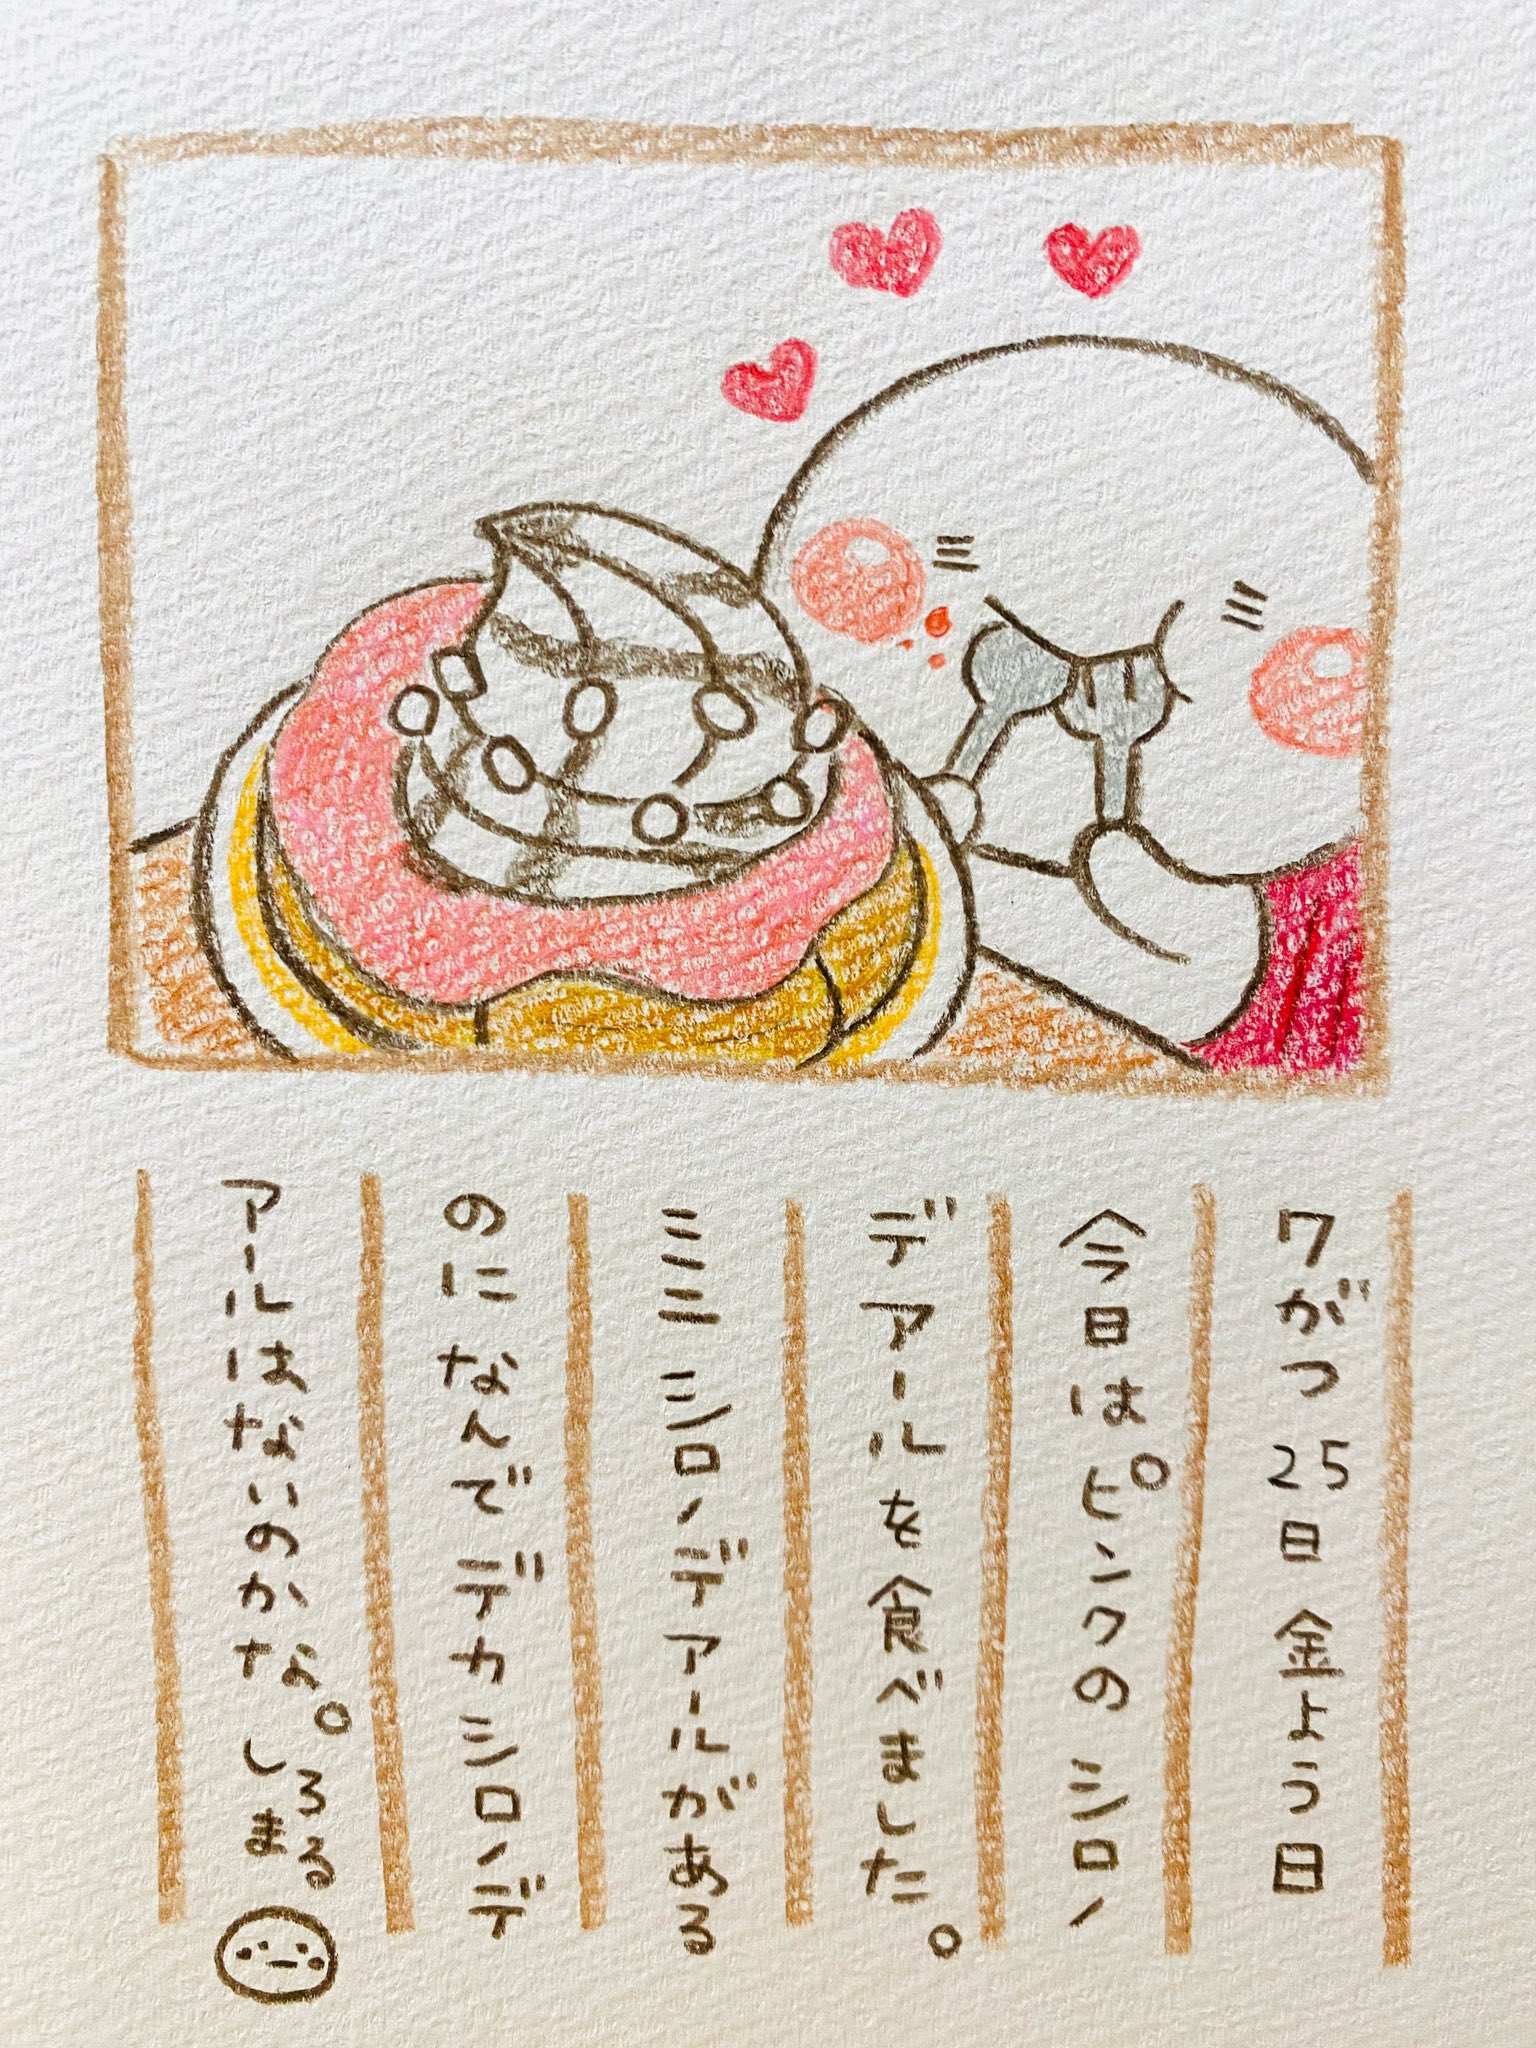 7がつ 25日 金よう日
今日はピンクのシロノ
デアールを食べました。
ミニシロノデアールがある
のになんでデカシロノデ
アールはないのかな。しろまる